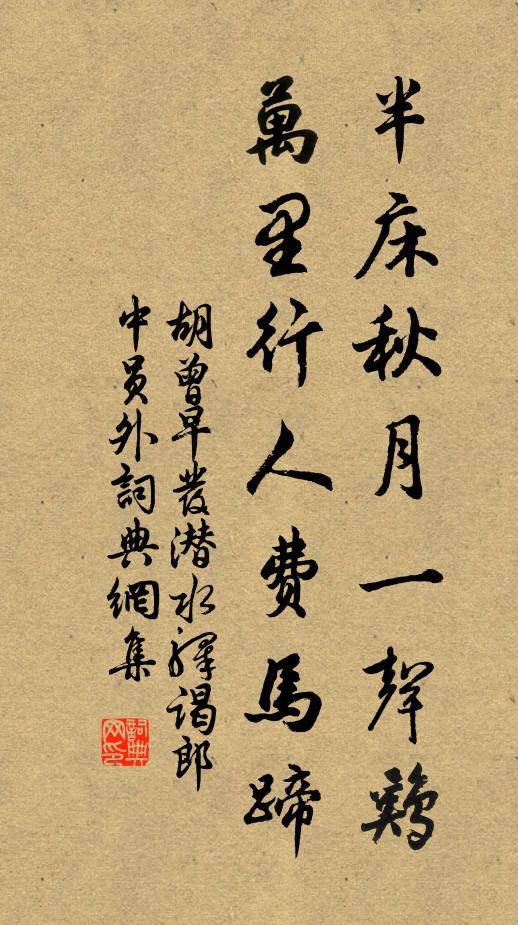 半床秋月一聲鷄
萬里行人費馬蹄
胡曾早發潜水驛謁郎
中員外詞典網集
詞典
网印